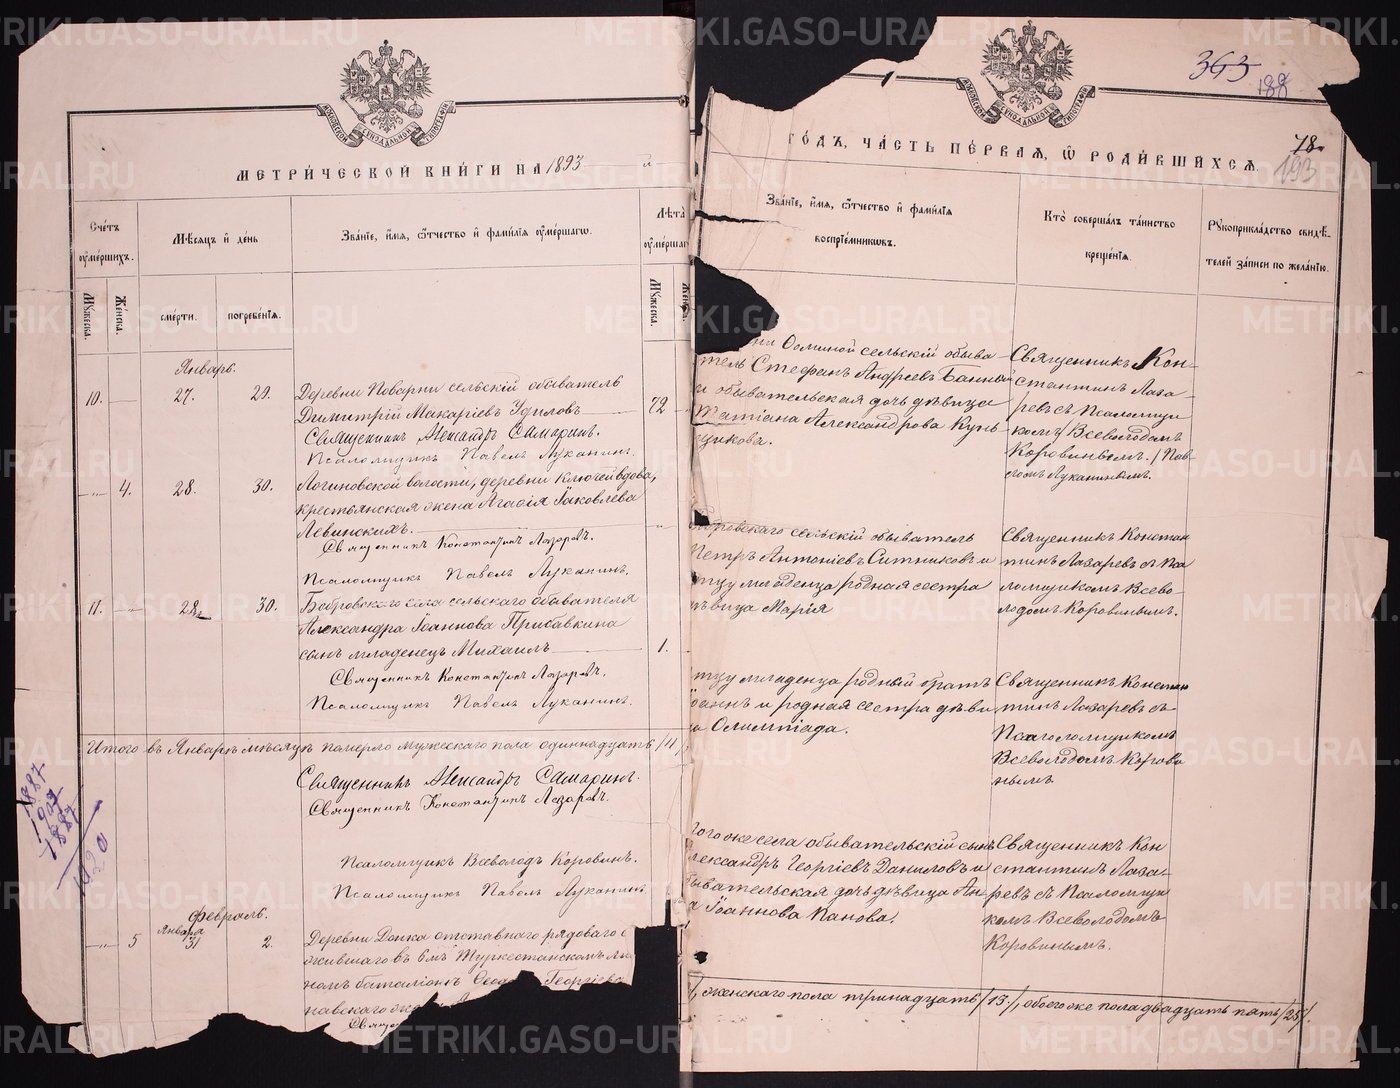 МЕТРИ́ЧЕСКОЙ КНИ́ГИ НА 1893
Сче́тъ
оумéршихъ.
Мѣ́сяцъ и҆ де́нь
Зва́нїе, и҆́мя, ѿтчество и҆ фами́лїя оумéршагѡ.
Лѣ́та
оумéршаг
Мꙋжеска.
Же́нска.
сме́рти.
погребе́нїя.
Мꙋжеска.
Январь.
10. 27. 29. Деревни Поварни сельскій обыватель
Димитрій Макаріевъ Удиловъ 72
Священникъ Александръ Самаринъ.
Псаломщикъ Павелъ Луканинъ.
4. 28. 30. Логиновской волости, деревни Ключей вдова,
крестьянская жена Агафія Іаковлева
Левинскихъ.
Священникъ Константинъ Лазаревъ.
Псаломщикъ Павелъ Луканинъ.
11. 28. 30. Бобровскаго села сельскаго обывателя
Александра Іоаннова Прибавкина
сынъ младенецъ Михаилъ 1.
Священникъ Константинъ Лазаревъ.
Псаломщикъ Павелъ Луканинъ.
Итого въ Январѣ мѣсяцѣ померло мужескаго пола одиннадцать /11
Священникъ Александръ Самаринъ.
Священникъ Константинъ Лазаревъ.
Псаломщикъ Всеволодъ Коровинъ.
Псаломщикъ Павелъ Луканинъ
1887
Февраль.
Января
5 31 2. Деревни Донка отставнаго рядоваго
жившаго въ 6мъ Туркестанскомъ
номъ баталіонѣ Георгіева
навскаго
Священ
363
188
18
193
ГОДЪ, ЧА́СТЬ ПЕ́РВАЯ, Ѡ҆ РОДИ́ВШИХСЯ.
Зва́нїе, и҆́мя, ѿтчество и҆ фами́лїя
воспрїе́мникѡвъ.
Кто̀ соверша́лъ та́инство
креще́нїя.
Рꙋкоприкла́дство свидѣ́-
телей за́писи по жела́нїю.
ни Осминой сельскій обыва-
тель Стефанъ Андреевъ Банно
и обывательская дочь дѣвица
Татіана Александрова Кунь
щикова.
Священникъ Кон-
стантинъ Лаза-
ревъ съ Псаломщи
комъ Всеволодомъ
Коровинымъ. / Пав
ломъ Луканинымъ.
бровскаго сельскій обыватель
Петръ Антоніевъ Ситниковъ и
тцу младенца родная сестра
дѣвица Марія
Священникъ Констан
тинъ Лазаревъ съ Пса
ломщикомъ Всево-
лодомъ Коровинымъ.
тцу младенца родный братъ
Іоаннъ и родная сестра дѣви
ца Олимпіада.
Священникъ Констан
тинъ Лазаревъ съ
Псаломщикомъ
Всеволодомъ Корови
нымъ
того же села обывательскій сынъ
лександръ Георгіевъ Даниловъ и
бывательская дочь дѣвица Ан-
а Іоаннова Панова.
Священникъ Кон
стантинъ Лаза-
ревъ съ Псаломщи
комъ Всеволодомъ
Коровинымъ.
/, женскаго пола тринадцать /13/, обоего же пола двадцать пять /25/.
METRIKI.GASO-URAL.RU